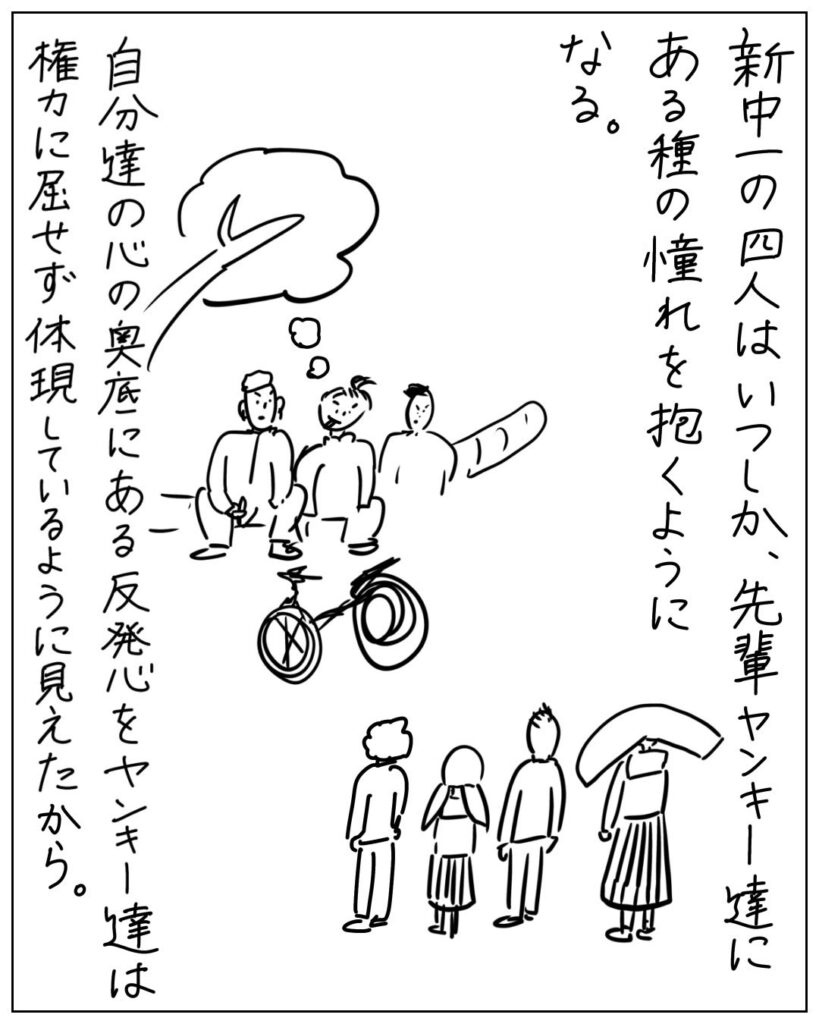 新中一の四人はいつしか、先輩ヤンキー達に
ある種の憧れを抱くように
なる。
自分達の心の奥底にある反発心をヤンキー達は
権力に屈せず体現しているように見えたから。